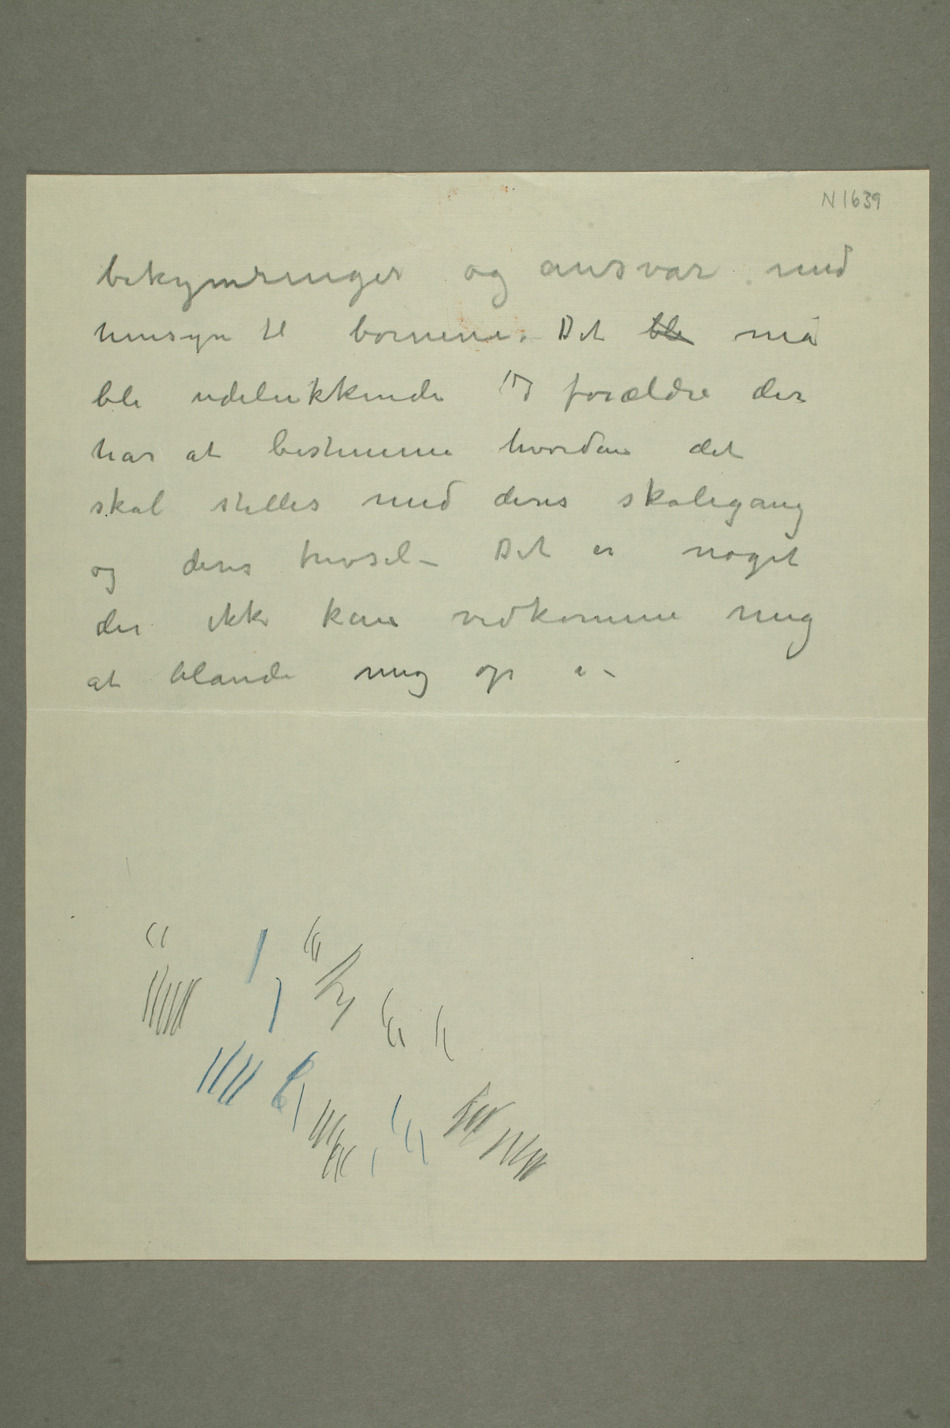 N 1639
bekymringer og ansvar med
hensyn til børnene. Det ble må
ble udelukkende forældre der
har at bestemme hvordan det
skal stilles med deres skolegang
og deres trivsel – Det er noget
der ikke kan vedkomme mig
at blande mig op i –